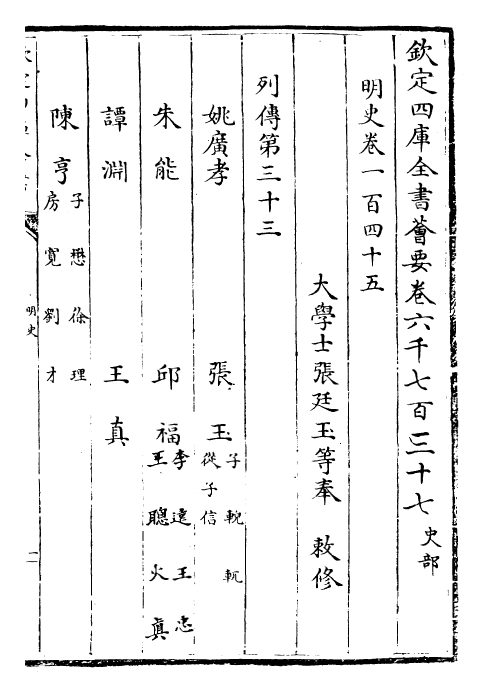 欽定四庫全書薈要卷六千七百三十七 史部
明史卷一百四十五
大學士張廷玉等奉 敕修
列傳第三十三
姚廣孝 張玉 子輗 軏 從子信
朱能 邱福 李遠 王忠 王聰 火真
譚淵 王真
陳亨 子懋 徐理 房寬 劉才
明史